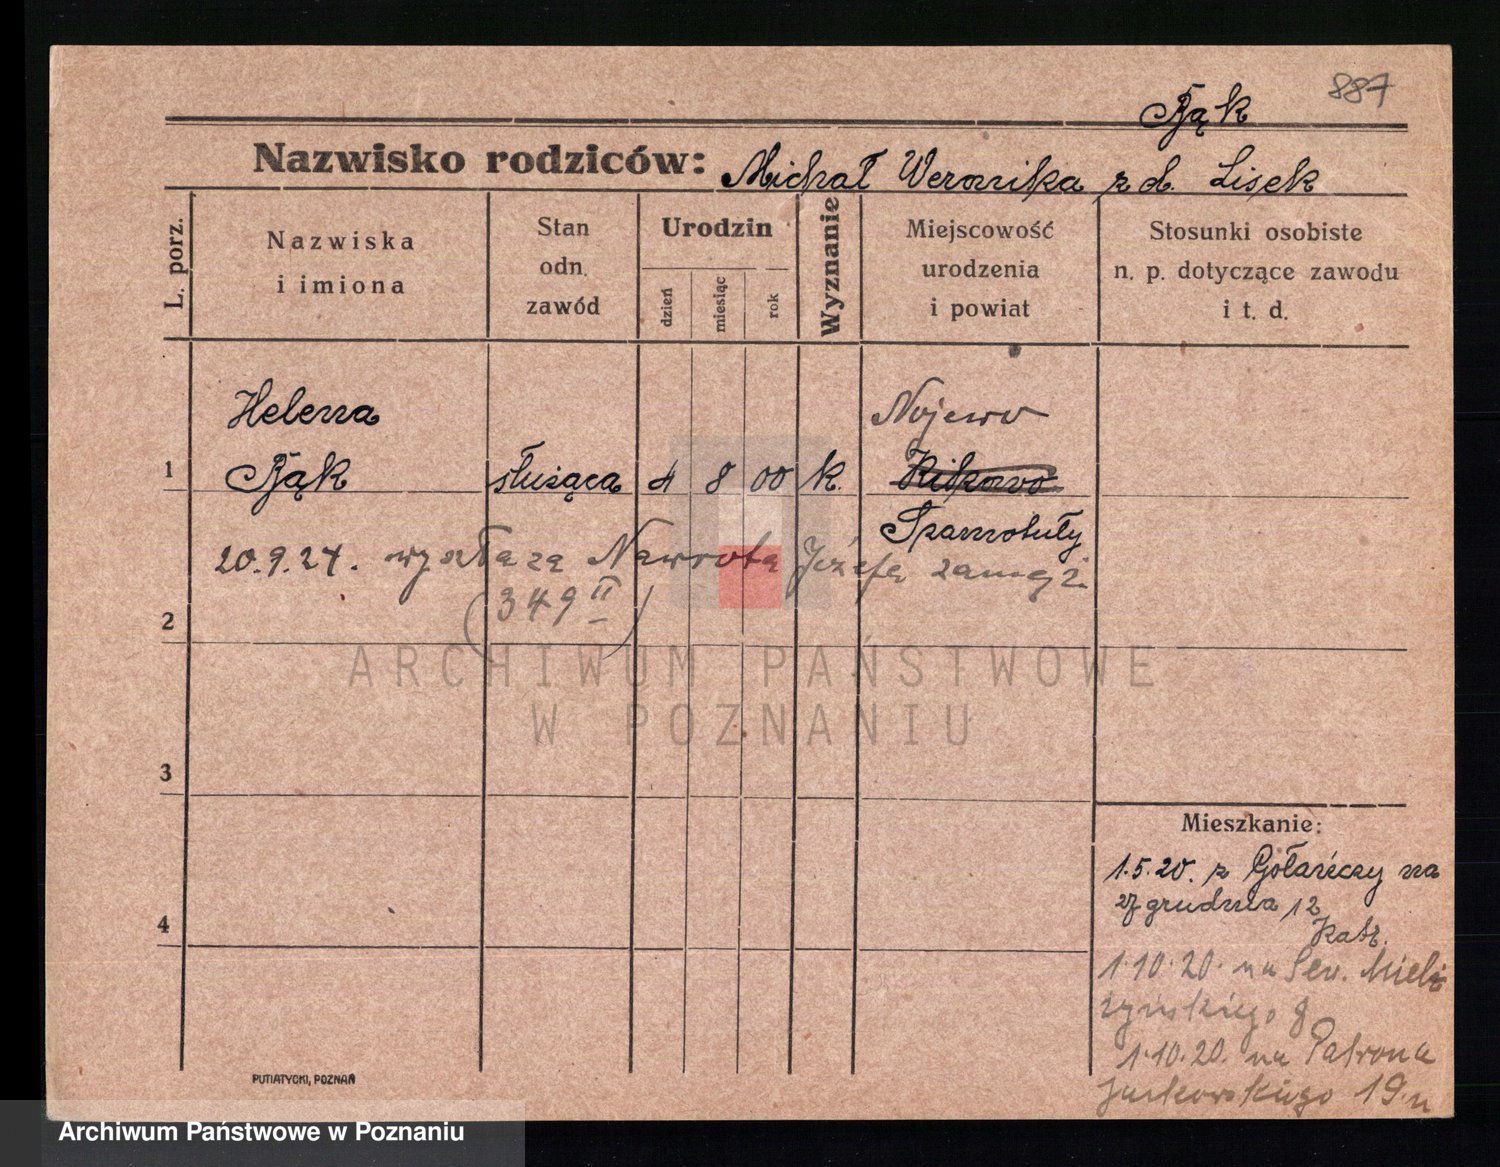 887
Bąk
Nazwisko rodziców: Michał Weronika z d. Lisek
L. porz.
Nazwiska
i imiona
Stan
odn.
zawód
Urodzin
dzień
miesiąc
rok
Wyznanie
Miejscowość
urodzenia
i powiat
Stosunki osobiste
n. p. dotyczące zawodu
i t. d.
Helena Nojewo
1 Bąk służąca 4 8 00 k.
Szamotuły
20.9.24. wyszła za Nawrota Józefa zamąż
(349 II)
2
ARCHIWUM PAŃSTWOWE
W POZNANIU
3
Mieszkanie:
1.5.20. z Gołańczy na
27 grudnia 12
4
1.10.20. na Sew. Miel
żyńskiego 8
1.10.20. na Patrona
Jackowskiego 19
PUTIATYCKI, POZNAŃ
Archiwum Państwowe w Poznaniu